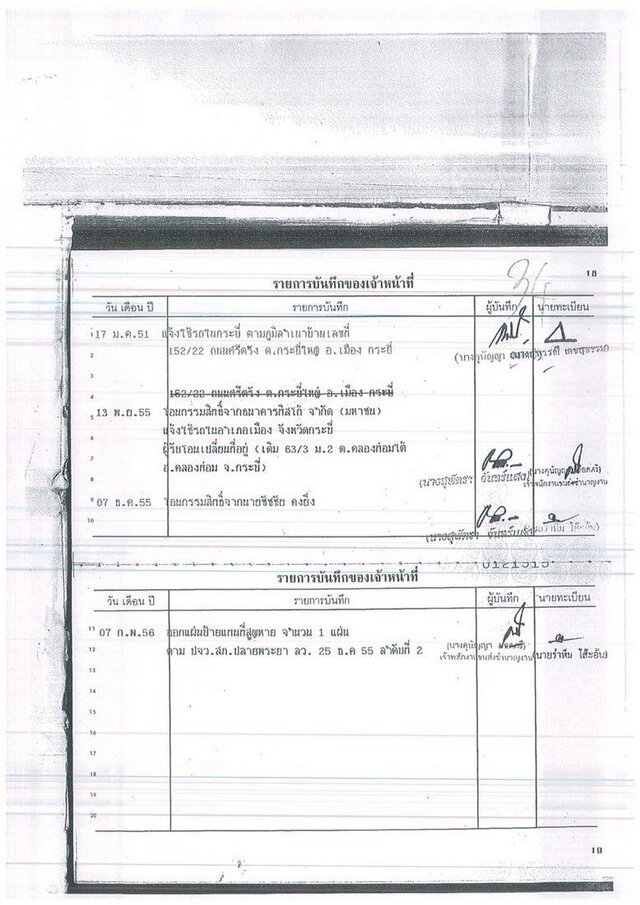 18
รายการบันทึกของเจ้าหน้าที่
วัน เดือน ปี รายการบันทึก ผู้บันทึก นายทะเบียน
1 17 ม.ค.51 แจ้งใช้รถในกระบี่ ตามภูมิลำเนาบ้านเลขที่
2 152/22 ถนนศรีตรัง ต.กระบี่ใหญ่ อ.เมือง กระบี่
3
4 152/22 ถนนศรีตรัง ต.กระบี่ใหญ่ อ.เมือง กระบี่
5 13 พ.ย.55 โอนกรรมสิทธิ์จากธนาคารทิสโก้ จำกัด (มหาชน)
6 แจ้งใช้รถในอำเภอเมือง จังหวัดกระบี่
7 ผู้รับโอนเปลี่ยนที่อยู่ (เดิม 63/3 ม.2 ต.คลองท่อมใต้
8 อ.คลองท่อม จ.กระบี่)
(นางสุพัตรา จันทร์แสง)
เจ้าพนักงานขนส่งชำนาญงาน
9 07 ธ.ค.55 โอนกรรมสิทธิ์จากนายชัชชัย คงยิ่ง
10
(นางสุพัตรา จันทร์แสง)
0121515
รายการบันทึกของเจ้าหน้าที่
วัน เดือน ปี รายการบันทึก ผู้บันทึก นายทะเบียน
11 07 ก.พ.56 ออกแผ่นป้ายแทนที่สูญหาย จำนวน 1 แผ่น
12 ตาม ปจว.สภ.ปลายพระยา ลว. 25 ธ.ค 55 ลำดับที่ 2
เจ้าพนักงานขนส่งชำนาญงาน
13
14
15
16
17
18
19
20
19